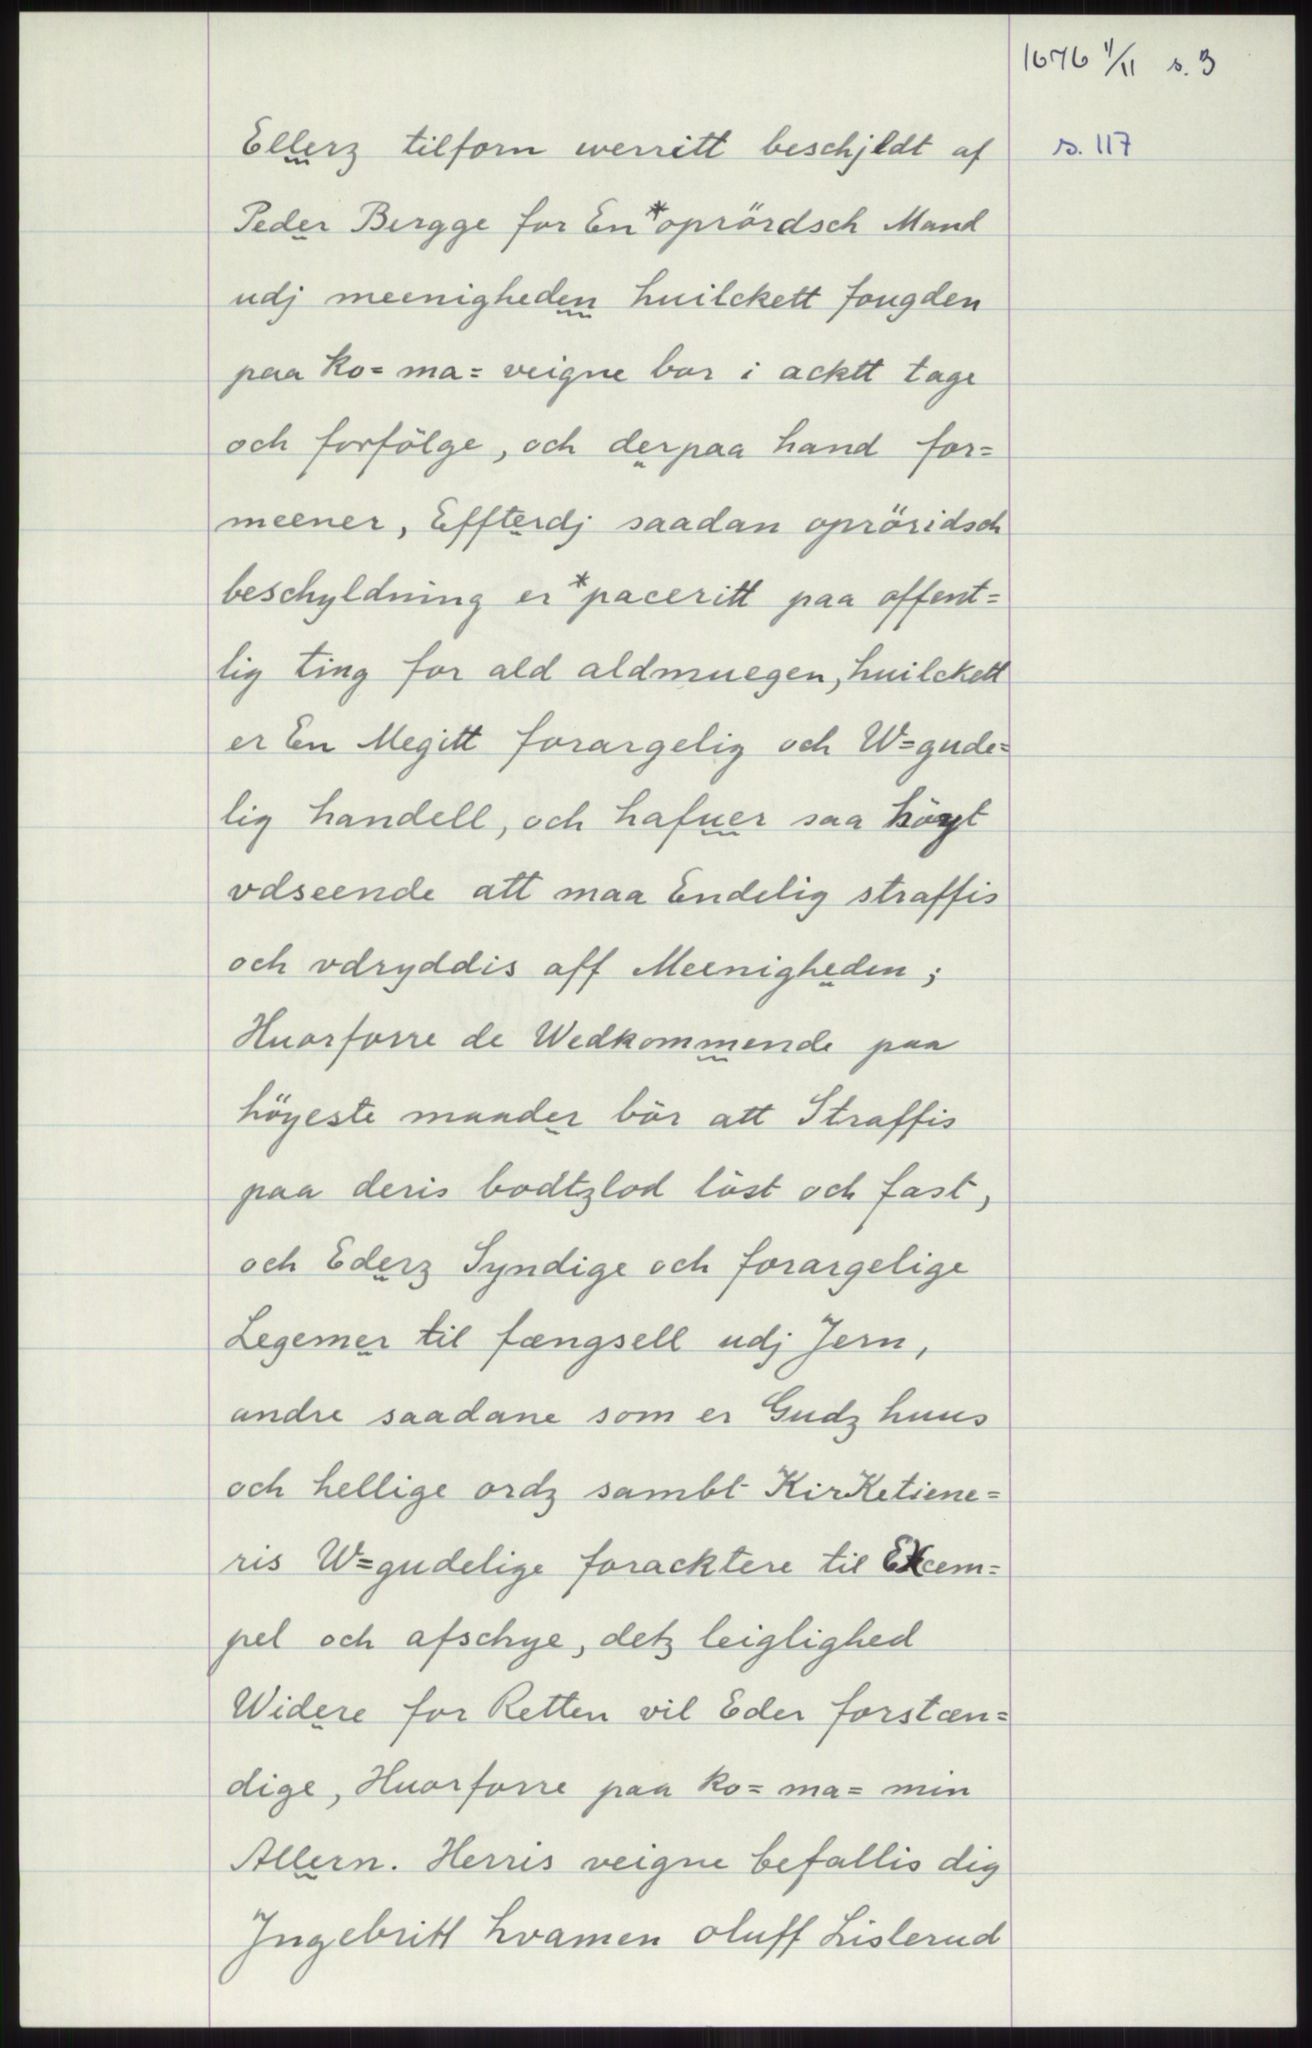 1676 11/11 s. 3
Ellerz tilforn werritt beschjldt af
s. 117
Peder Bergge for En *oprördsch Mand
udj meenigheden huilckett fougden
paa ko= ma= veigne bor i acktt tage
och forfölge, och derpaa hand for=
meener, Effterdj saadan opröridsch
beschyldning er *paceritt paa offent=
lig ting for ald aldmuegen, huilckett
er En Megitt forargelig och W=gude=
lig handell, och hafuer saa höyt
vdseende att maa Endelig straffis
och vdryddis aff Meenigheden;
Huorforre de Wedkommende paa
höyeste maader bör att Straffis
paa deris bodtzlod löst och fast,
och Ederz Syndige och forargelige
Legemer til fængsell udj Jern,
andre saadane som er Gudz huus
och hellige ordz sambt KirKetiene=
ris W=gudelige foracktere til Excem=
pel och afschye, detz leiglighed
Widere for Retten vil Eder forstæn=
dige, Huorforre paa ko= ma= min
Allern. Herris veigne befallis dig
Jngebritt hvamen oluff Lislerud